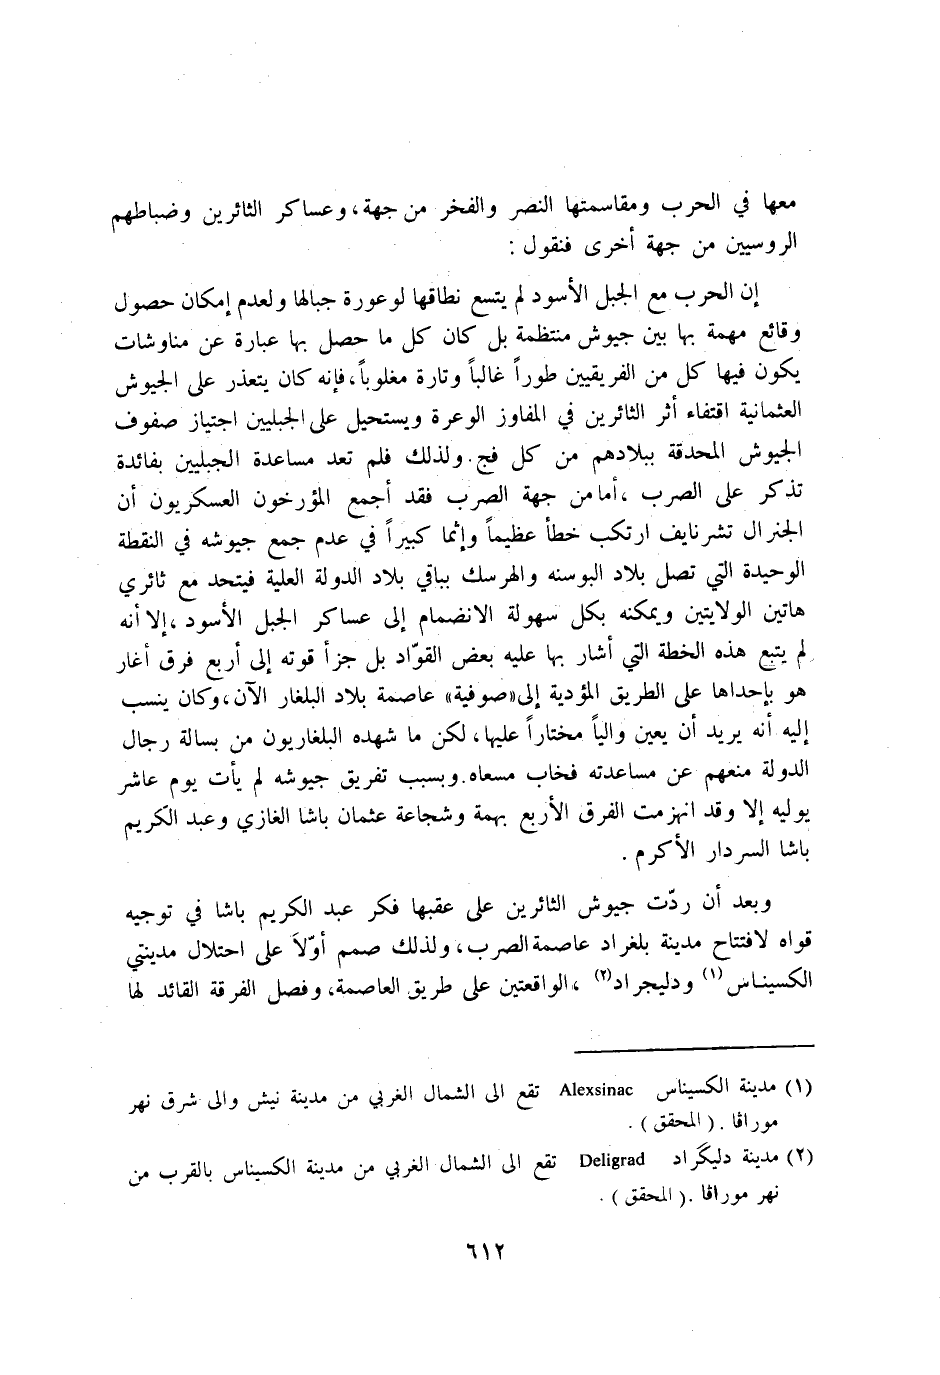 معها في الحرب ومقاسمتها النصر والفخر من جهة، وعساكر الثائرين وضباطهم
الروسيين من جهة أخرى فنقول :
إن الحرب مع الجبل الأسود لم يتسع نطاقها لوعورة جبالها ولعدم إمكان حصول
وقائع مهمة بها بين جيوش منتظمة بل كان كل ما حصل بها عبارة عن مناوشات
يكون فيها كل من الفريقيين طوراً غالباً وتارة مغلوباً، فإنه كان يتعذر على الجيوش
العثمانية اقتفاء أثر الثائرين في المفاوز الوعرة ويستحيل على الجبليين اجتياز صفوف
الجيوش المحدقة ببلادهم من كل فج. ولذلك فلم تعد مساعدة الجبليين بفائدة
تذكر على الصرب ،أما من جهة الصرب فقد أجمع المؤرخون العسكريون أن
الجنرال تشرنايف ارتكب خطأ عظيماً وإثما كبيراً في عدم جمع جيوشه في النقطة
الوحيدة التي تصل بلاد البوسنه والهرسك بباقي بلاد الدولة العلية فيتحد مع ثائري
هاتين الولايتين ويمكنه بكل سهولة الانضمام إلى عساكر الجبل الأسود ،إلا أنه
لم يتبع هذه الخطة التي أشار بها عليه بعض القوّاد بل جزأ قوته إلى أربع فرق أغار
هو بإحداها على الطريق المؤدية إلى«صوفية» عاصمة بلاد البلغار الآن، وكان ينسب
إليه أنه يريد أن يعين والياً مختاراً عليها، لكن ما شهده البلغاريون من بسالة رجال
الدولة منعهم عن مساعدته فخاب مسعاه. وبسبب تفريق جيوشه لم يأت يوم عاشر
يوليه إلا وقد انهزمت الفرق الأربع بهمة وشجاعة عثمان باشا الغازي وعبد الكّريم
باشا السردار الأكرم .
وبعد أن ردّت جيوش الثائرين على عقبها فكر عبد الكريم باشا في توجيه
قواه لافتتاح مدينة بلغراد عاصمة الصرب، ولذلك صمم أوّلاً على احتلال مدينتي
الكسيناس(١) ودليجراد(٢) ،الواقعتين على طريق العاصمة، وفصل الفرقة القائد لها
(١) مدينة الكسيناس Alexsinac تقع الى الشمال الغربي من مدينة نيش والى شرق نهر
موراڤا . ( المحقق ) .
(٢) مدينة دليگراد Deligrad تقع الى الشمال الغربي من مدينة الكسيناس بالقرب من
نهر موراڤا . ( المحقق ) .
٦١٢